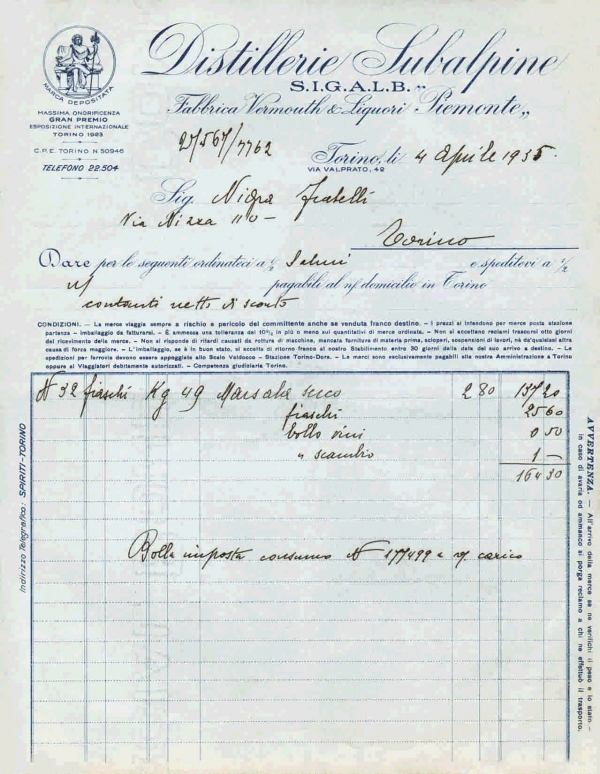 MARCA DEPOSITATA
MASSIMA ONORIFICENZA
GRAN PREMIO
ESPOSIZIONE INTERNAZIONALE
TORINO 1923
C.P.E. TORINO N 50946
TELEFONO 22.504
Distillerie Subalpine
S.I.G.A.L.B. „
Fabbrica Vermouth & Liquori Piemonte„
27/567/7762
Torino, li 4 Aprile 1935.
VIA VALPRATO, 42
Sig. Nigra Fratelli
Via Nizza 110 -
Torino
Dare per le seguenti ordinateci a e speditevi a
pagabili al n/ domicilio in Torino
contanti netto di sconto
CONDIZIONI. – La merce viaggia sempre a rischio e pericolo del committente anche se venduta franco destino. – I prezzi si intendono per merce posta stazione
partenza – imballaggio da fatturarsi. – È ammessa una tolleranza del 10%, in più o meno sui quantitativi di merce ordinata. – Non si accettano reclami trascorsi otto giorni
del ricevimento della merce. – Non si risponde di ritardi causati da rotture di macchine, mancata forniture di materia prime, scioperi, sospensioni di lavori, nè da'qualsiasi altra
causa di forza maggiore. – L'imballaggio, se è in buon stato, si accolta di ritorno franco al nostro Stabilimento entro 30 giorni dalla data del suo arrivo a destino. – Le
spedizioni per ferrovia devono essere appoggiate allo Scalo Valdocco - Stazione Torino-Dora. – Le merci sono esclusivamente pagabili alla nostra Amministrazione a Torino
oppure ai Viaggiatori debitamente autorizzati. – Competenza giudiziaria Torino.
N 32 fiaschi Kg 49 Marsala secco 2 80 137 20
fiaschi 25 60
bollo vini 0 50
" scambio 1 –
164 30
Bolla imposta consumo N 177499 a v/ carico
Indirizzo Telegrafico: SPIRITI-TORINO
AVVERTENZA. – All'arrivo della merce se ne verifichi il peso e lo stato –
in caso di avaria od ammanco si porga reclamo a chi ne effettuò il trasporto.